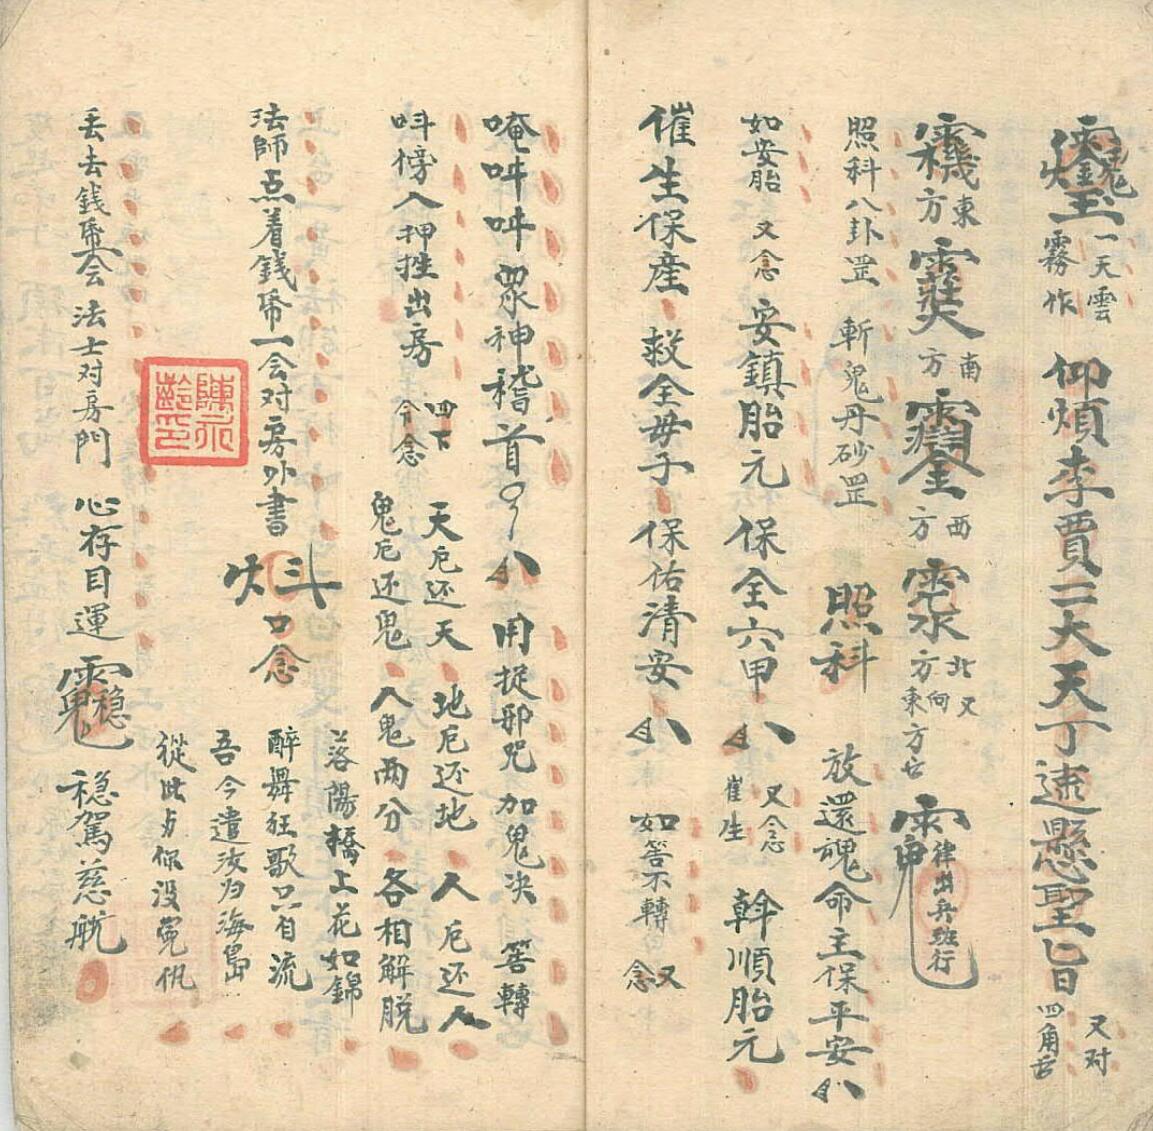 一天雲霧作 仰煩李賈二大天丁速懸聖七日 又对四角舌
東方 南方 西方 北方 又向東方廿 律出兵班行
照科八卦罡 斬鬼丹砂罡 照科 放還魂命主保平安
如安胎 又念 安鎮胎元 保全六甲 又念崔生 斡順胎元
催生保產 救全毋子 保佑清安 如筶不轉 又念
唵吽吽眾神稽首 用捉邪咒加鬼决 筶轉
呌傍入押挫出房 四下令念 天厄还天 地厄还地 人厄还人
鬼厄还鬼 人鬼两分 各相解脱
法師点着錢帋一会对房外書 口念 落陽橋上花如錦
醉舞狂歌只自流
吾今遣汝归海島
從此与你没冤仇
丢去錢帋会 法士对房門 心存目運 穏駕慈航
陳永齡印